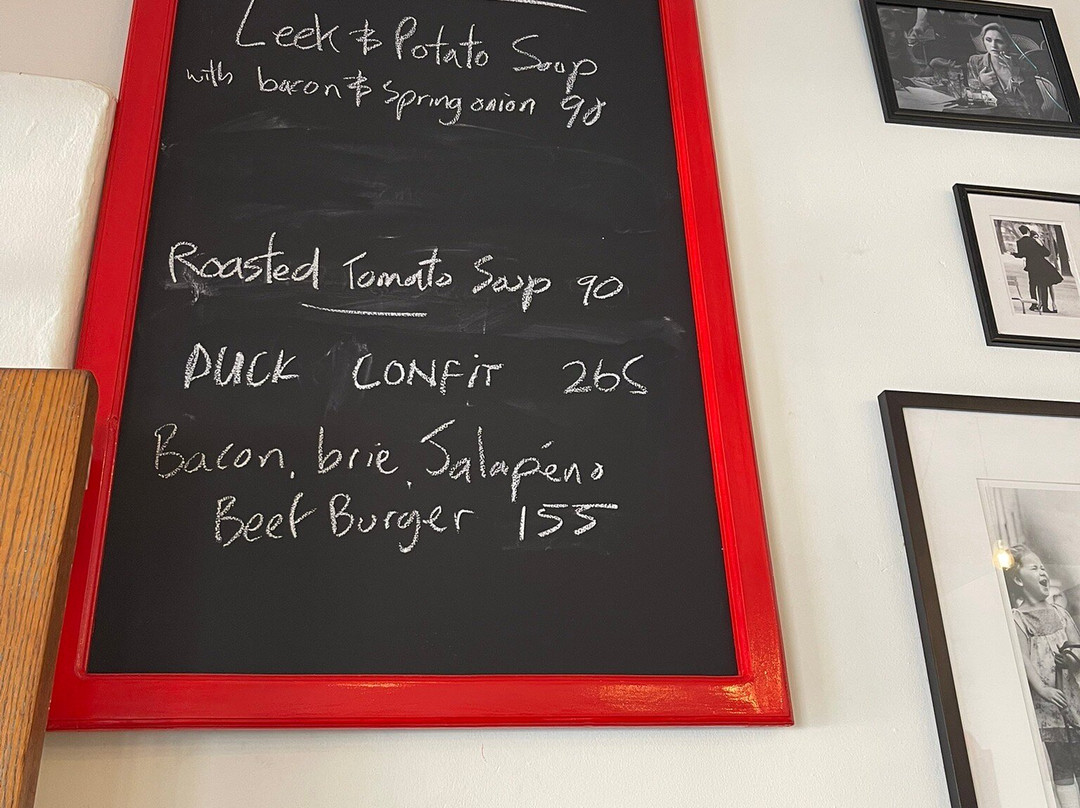 Leek & Potato Soup
with bacon & Spring onion 90
Roasted Tomato Soup 90
DUCK CONFiT 265
Bacon, brie, Jalapéno
Beef Burger 155